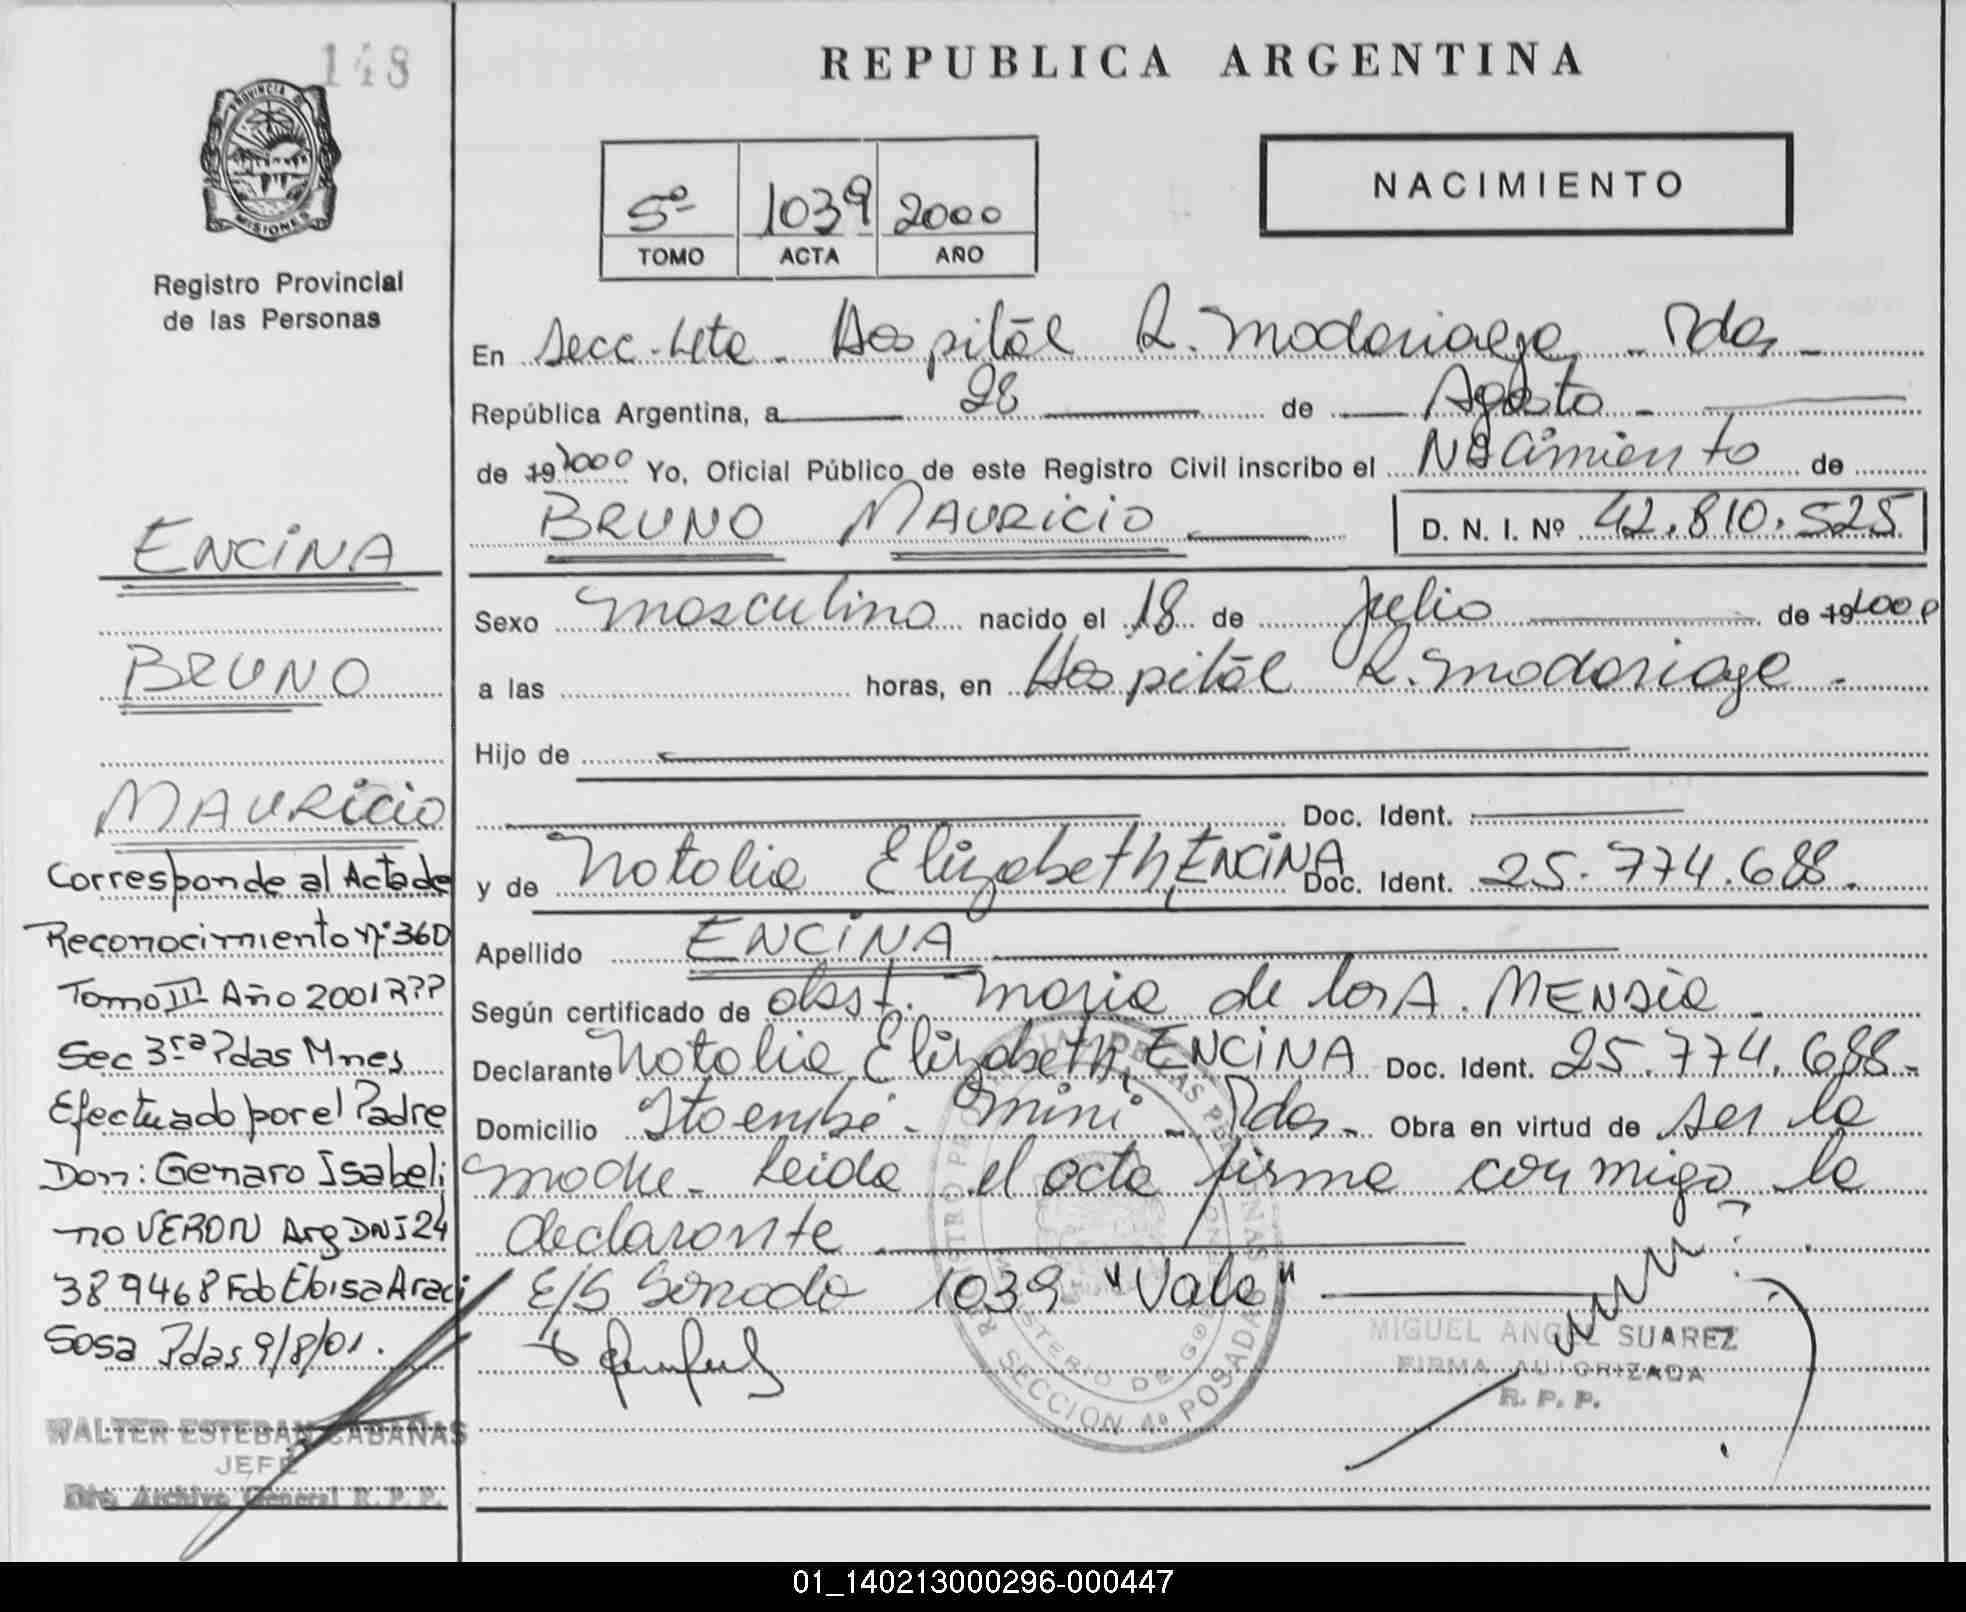 148
REPUBLICA ARGENTINA
PROVINCIA DE
MISIONES
Registro Provincial
de las Personas
5º 1039 2000
TOMO ACTA AÑO
NACIMIENTO
En Secc. 4ta. Hospital R. Madariaga - Pdas -
República Argentina, a 28 de Agosto -
de 19 2000 Yo, Oficial Público de este Registro Civil inscribo el Nacimiento de
BRUNO MAURICIO D. N. I. Nº 42.810.525
Sexo masculino nacido el 18 de Julio de 19 2000
a las horas, en Hospital R. Madariaga -
Hijo de
Doc. Ident.
y de Natalia Elizabeth, ENCINA Doc. Ident. 25.774.688.
Apellido ENCINA
Según certificado de obst. Maria de los A. MENDEZ
Declarante Natalia Elizabeth, ENCINA Doc. Ident. 25.774.688.-
Domicilio Itaembé - Mini - Pdas - Obra en virtud de ser la
madre - Leida el acta firma conmigo la
declarante.
E/S Borrado 1039 "Vale"
MIGUEL ANGEL SUAREZ
FIRMA AUTORIZADA
R. P. P.
SECCION 4º POSADAS
ENCINA
BRUNO
MAURICIO
Corresponde al Acta de
Reconocimiento Nº 360
Tomo III Año 2001 RPP
Sec 3ra Pdas Mnes
Efectuado por el Padre
Don: Genaro Isabeli
no VERON Arg DNI 24
389468 Fdo Eloisa Araci
Sosa Pdas 9/8/01.
WALTER ESTEBAN CABAÑAS
JEFE
Dto Archivo General R. P. P.
01_140213000296-000447